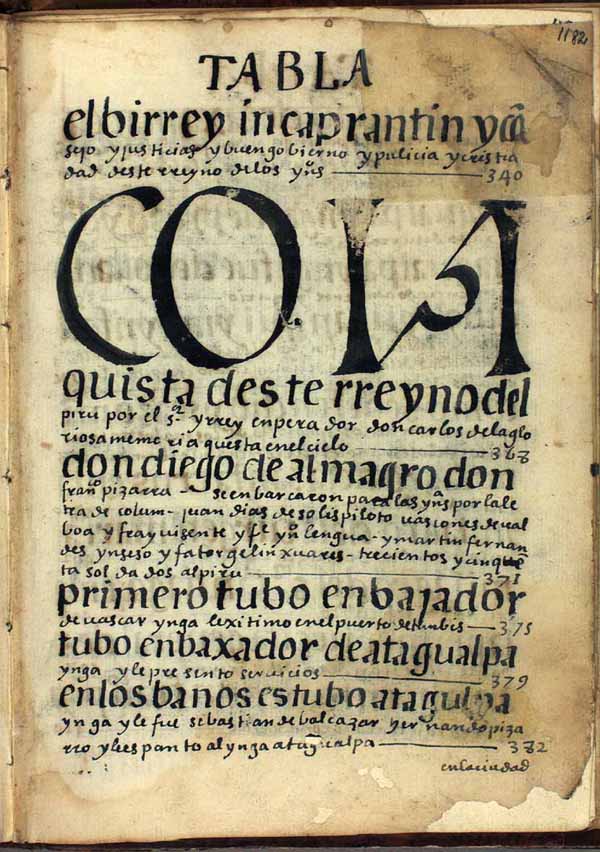 1182
TABLA
el birrey incap rantin y cō
sejo y justicias y buen gobierno y pulicia y cristia
dad deste rreyno de los yn̄s — 340
CON
quista deste rreyno del
piru por el s.r y rrey enperador don carlos de la glo
riosa mem ria questa en el cielo — 368
don diego de almagro don
fran.co pizarra — se enbarcaron para las yn̄s por la le
tra de colum — juan dias de solis piloto uascones de ual
boa y fray uisente y fl.e yn̄ lengua — y martin fernan
des ynseso y fator gelin xuares — trecientos y cinquē
ta soldados al piru — 371
primero tubo enbajador
de uascar ynga lexitimo en el puerto de tunbis — 375
tubo enbaxador de atagualpa
ynga y le presento servicios — 379
en los banos estubo atagulpa
ynga y le fue sebastian de balcazar hernando piza
rro y les panto al ynga atagualpa — 382
en la ciudad